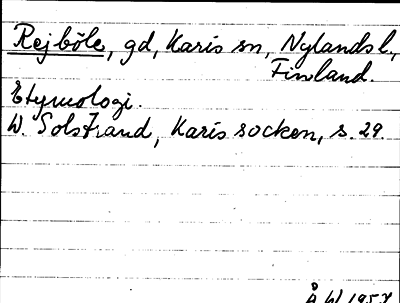 Rejböle, gd, Karis sn, Nylands l.,
Finland.
Etymologi.
W. Solstrand, Karis socken, s. 29.
Å W 195